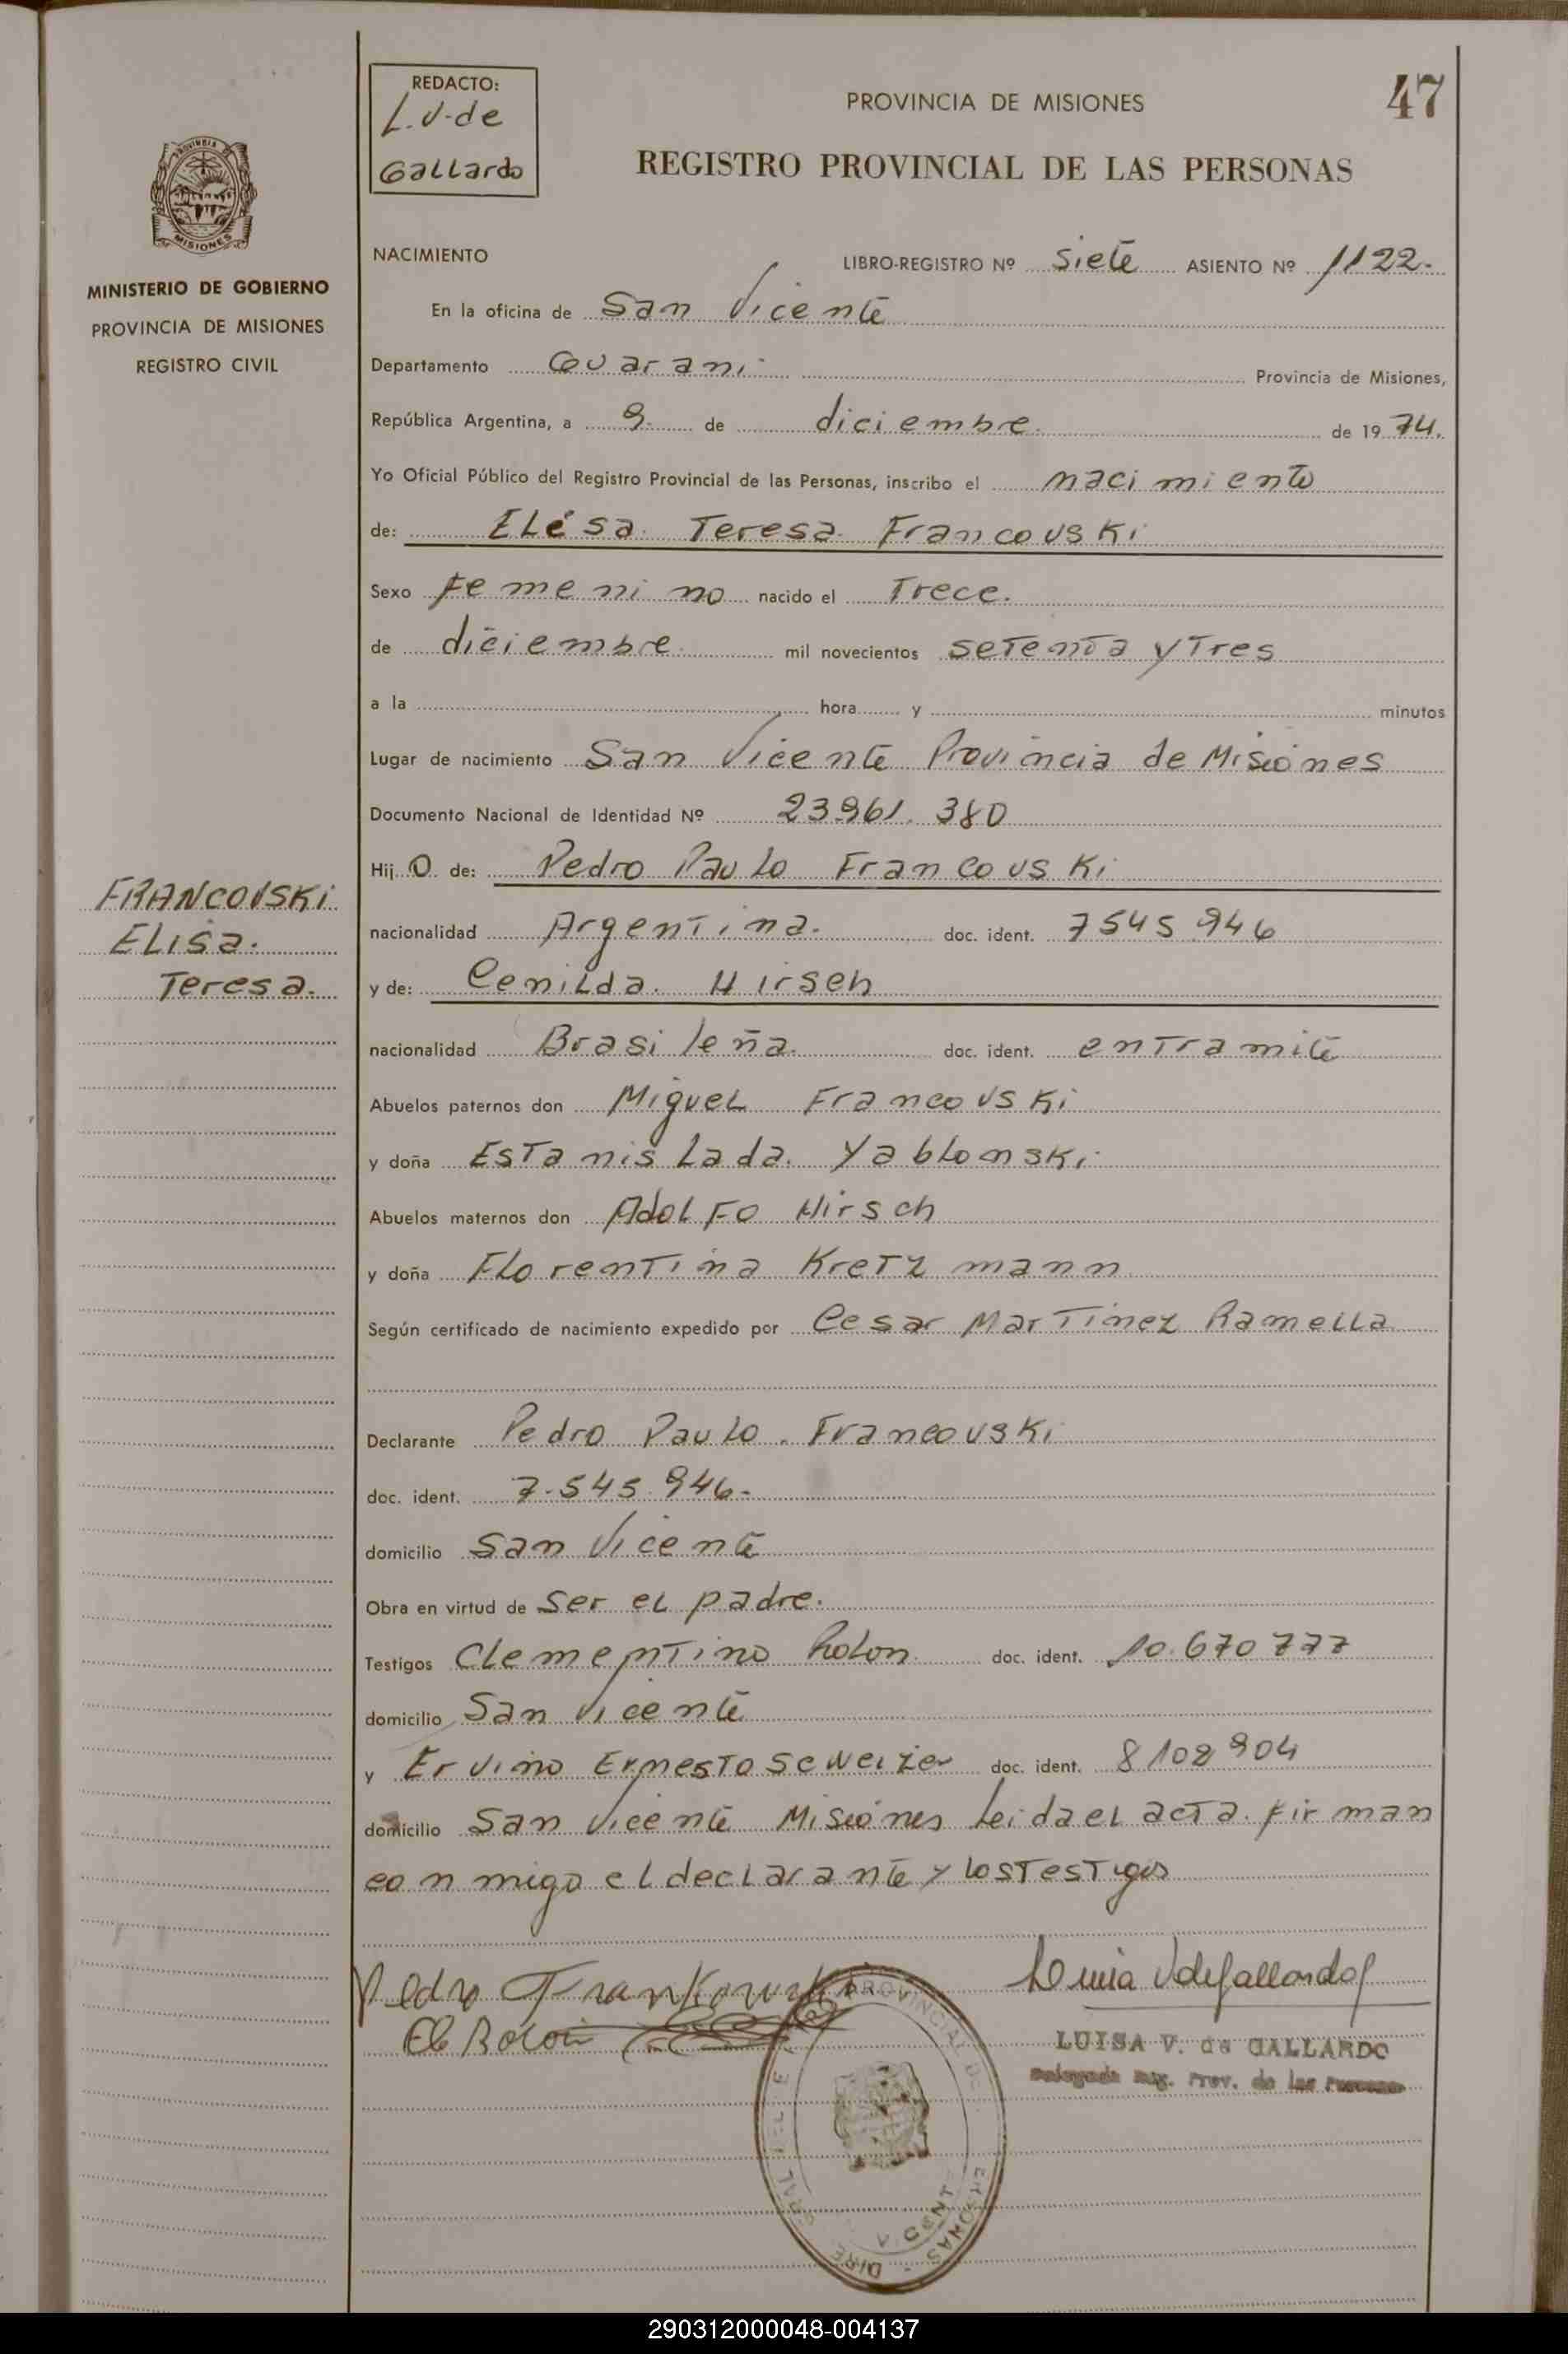 REDACTO:
L. V. de
Gallardo
PROVINCIA DE MISIONES
47
REGISTRO PROVINCIAL DE LAS PERSONAS
MISIONES
MINISTERIO DE GOBIERNO
PROVINCIA DE MISIONES
REGISTRO CIVIL
NACIMIENTO
LIBRO-REGISTRO Nº siete ASIENTO Nº 1122.
En la oficina de San Vicente
Departamento Guarani Provincia de Misiones,
República Argentina, a 9. de diciembre. de 1974.
Yo Oficial Público del Registro Provincial de las Personas, inscribo el nacimiento
de: Elisa Teresa Francovski
Sexo Femenino nacido el Trece.
de diciembre. mil novecientos setenta y Tres
a la hora y minutos
Lugar de nacimiento San Vicente Provincia de Misiones
Documento Nacional de Identidad Nº 23961.380
Hij O de: Pedro Paulo Francovski
FRANCOVSKI
ELISA.
Teresa.
nacionalidad Argentina. doc. ident. 7545.946
y de: Cenilda. Hirsch
nacionalidad Brasileña. doc. ident. entramite
Abuelos paternos don Miguel Francovski
y doña Estanislada. Yablonski
Abuelos maternos don Adolfo Hirsch
y doña Florentina Kretzmann
Según certificado de nacimiento expedido por Cesar Martinez Ramella
Declarante Pedro Paulo. Francovski
doc. ident. 7.545.946.
domicilio San Vicente
Obra en virtud de ser el padre.
Testigos Clementino Rolon doc. ident. 10.670777
domicilio San Vicente
y Ervino Ernesto Scweizer doc. ident. 8108904
domicilio San Vicente Misiones Leida el acta. firman
conmigo el declarante y los testigos
Pedro Frankowski
Luisa V de Gallardo
LUISA V. de GALLARDO
Delegada Reg. Prov. de las Personas
290312000048-004137